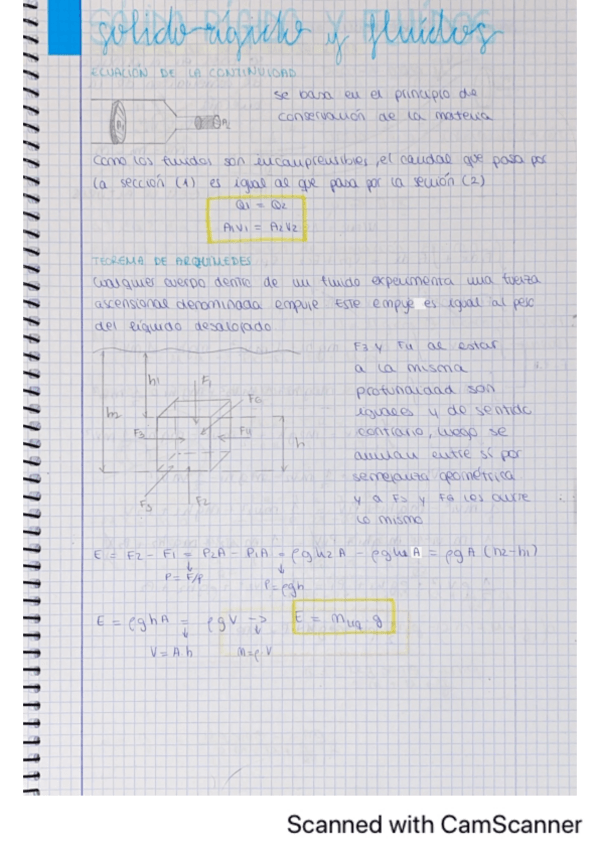 sólido rígido y fluidos
ECUACIÓN DE LA CONTINUIDAD
se basa en el principio de
conservación de la materia
A1
A2
Como los fluidos son incompresibles, el caudal que pasa por
la sección (1) es igual al que pasa por la sección (2)
Q1 = Q2
A1V1 = A2V2
TEOREMA DE ARQUIMEDES
Cualquier cuerpo dentro de un fluido experimenta una fuerza
ascensional denominada empuje Este empuje es igual al peso
del líquido desalojado
F3 y F4 al estar
a la misma
profundidad son
iguales y de sentido
contrario, luego se
anulan entre sí por
semejanza geométrica
y a F5 y F6 les ocurre
lo mismo
h1
h2
F1
F6
F3
F4
h
F5
F2
E = F2 - F1 = P2A - P1A = ρgh2 A - ρgh1 A = ρgA (h2-h1)
P = F/A
P = ρgh
E = ρghA = ρgV -> E = mliq g
V = A h
m = ρ V
Scanned with CamScanner